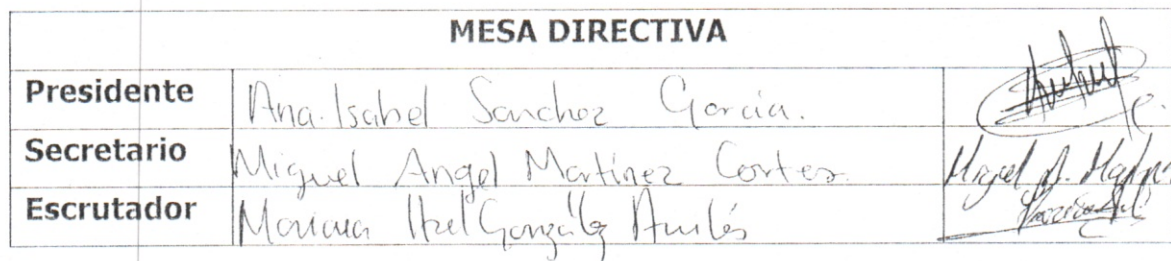 MESA DIRECTIVA
Presidente Ana Isabel Sanchez Garcia.
Secretario Miguel Angel Martinez Cortes. Miguel A.
Escrutador Mariana Itzel González Avilés